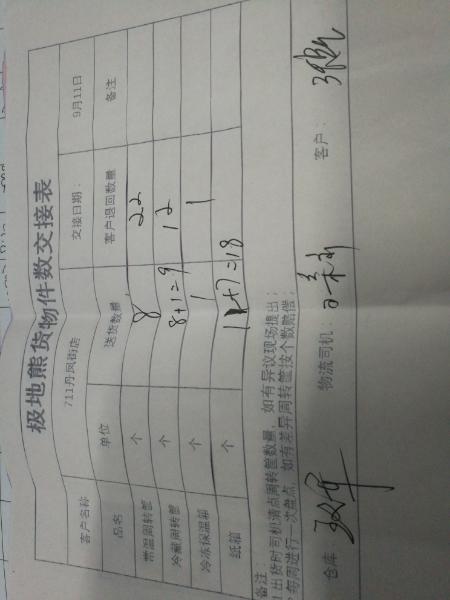 极地熊货物件数交接表
客户名称 711丹凤街店 交接日期： 9月11日
品名 单位 送货数量 客户退回数量 备注
常温周转筐 个 8 22
冷藏周转筐 个 8+1=9 12
冷冻保温箱 个 1 1
纸箱 个 11+7=18
备注：
出货时司机清点周转筐数量，如有异议现场提出；
每周进行一次盘点，如有差异周转筐按个数赔偿；
仓库： 物流司机： 客户：